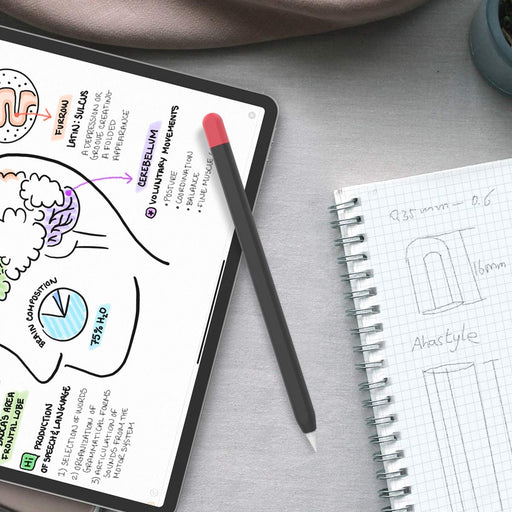 FURROW
LATIN: SULCUS
A DEPRESSION OR
GROOVE CREATING
A FOLDED
APPEARANCE
CEREBELLUM
VOLUNTARY MOVEMENTS
• POSTURE
• COORDINATION
• BALANCE
• FINE MUSCLE
BRAIN COMPOSITION
75% H₂O
BROCA'S AREA
FRONTAL LOBE
Hi
PRODUCTION
OF SPEECH & LANGUAGE
1) SELECTION OF WORDS
2) ORGANIZATION OF
GRAMMATICAL FORMS
3) ARTICULATION OF
SOUNDS FROM THE
MOTOR SYSTEM
16mm
Ahastyle